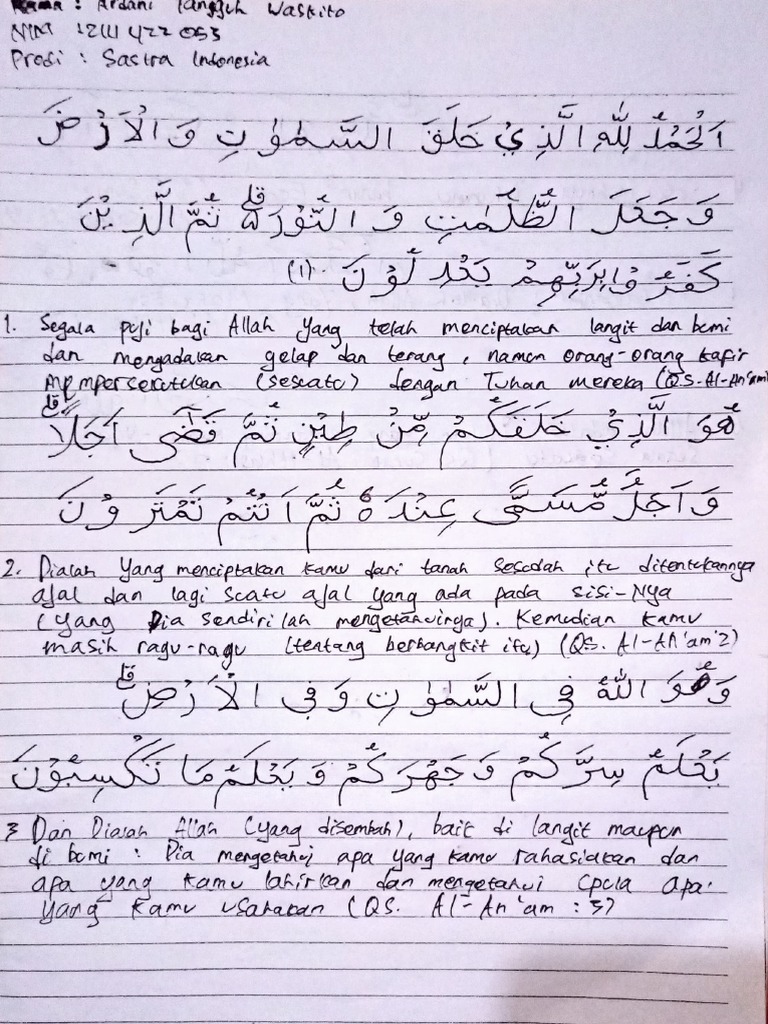 Nama : Ardani Tangguh Waskito
NIM : 1211422053
Prodi : Sastra Indonesia
اَلْحَمْدُ لِلّٰهِ الَّذِيْ خَلَقَ السَّمٰوٰتِ وَالْاَرْضَ
وَجَعَلَ الظُّلُمٰتِ وَالنُّوْرَ ەۗ ثُمَّ الَّذِيْنَ
كَفَرُوْا بِرَبِّهِمْ يَعْدِلُوْنَ (١)
1. Segala puji bagi Allah yang telah menciptakan langit dan bumi
dan mengadakan gelap dan terang, namun orang-orang kafir
mempersekutukan (sesuatu) dengan Tuhan mereka (QS. Al-An'am:1)
هُوَ الَّذِيْ خَلَقَكُمْ مِّنْ طِيْنٍ ثُمَّ قَضٰٓى اَجَلًاۗ
وَاَجَلٌ مُّسَمًّى عِنْدَهٗ ثُمَّ اَنْتُمْ تَمْتَرُوْنَ
2. Dialah yang menciptakan kamu dari tanah sesudah itu ditentukannya
ajal dan lagi suatu ajal yang ada pada sisi-Nya
(yang Dia sendirilah mengetahuinya). Kemudian kamu
masih ragu-ragu (tentang berbangkit itu) (QS. Al-An'am:2)
وَهُوَ اللّٰهُ فِى السَّمٰوٰتِ وَفِى الْاَرْضِۗ
يَعْلَمُ سِرَّكُمْ وَجَهْرَكُمْ وَيَعْلَمُ مَا تَكْسِبُوْنَ
3 Dan Dialah Allah (yang disembah), baik di langit maupun
di bumi : Dia mengetahui apa yang kamu rahasiakan dan
apa yang kamu lahirkan dan mengetahui (pula apa
yang kamu usahakan (QS. Al-An'am : 3)